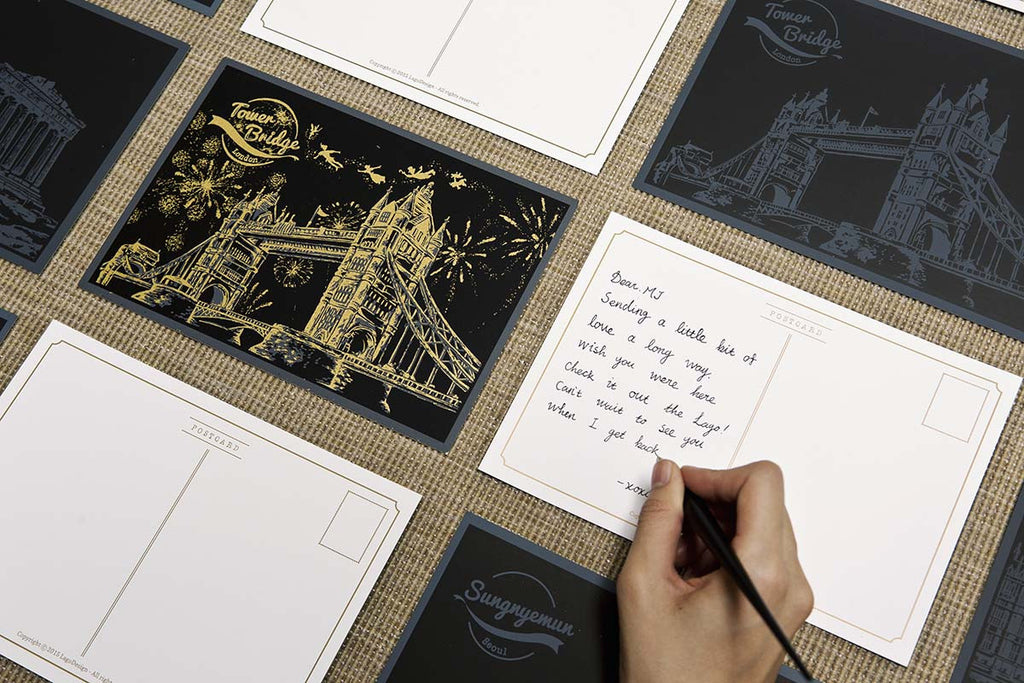 Copyright © 2015 LagoDesign - All rights reserved.
Tower
Bridge
London
Tower
Bridge
London
POSTCARD
Dear. MJ
Sending a little bit of
love a long way.
wish you were here
check it out the Lago!
Can't wait to see you
when I get back
-xoxo
POSTCARD
Copyright © 2015 LagoDesign - All
Sungnyemun
Seoul